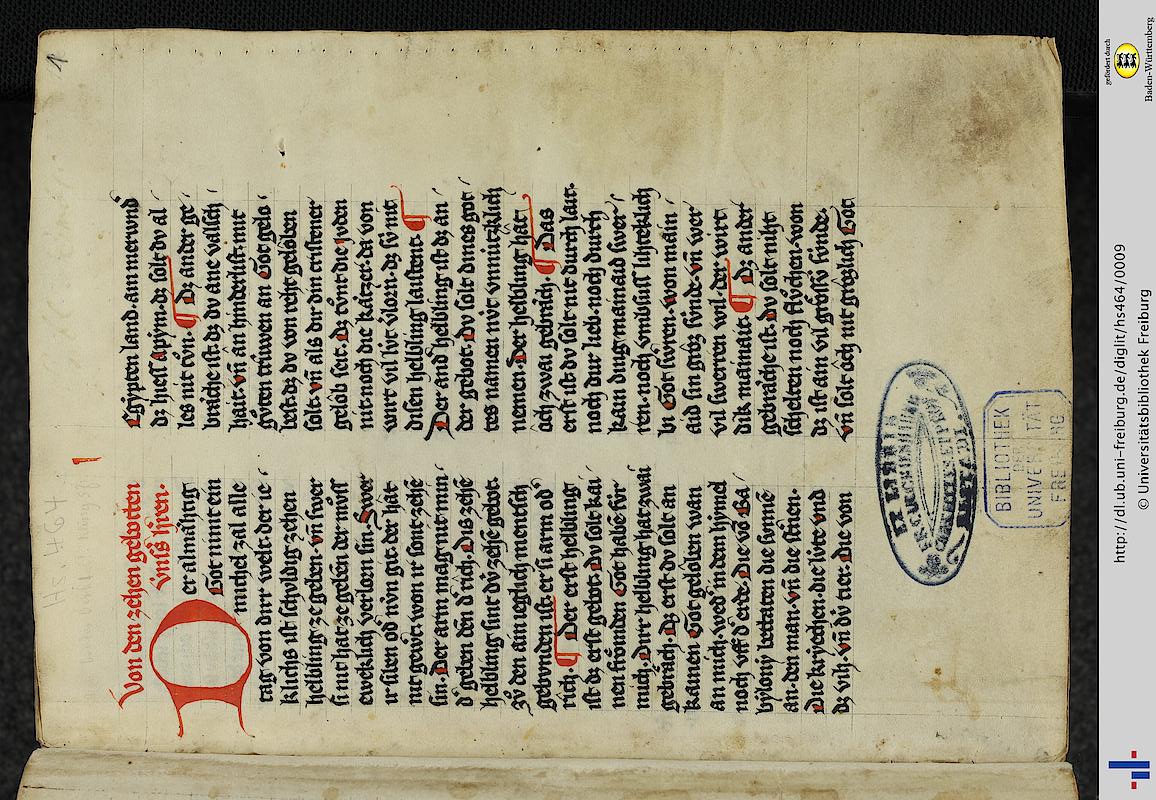 1
Hs. 464
Von den zehen gebotten
vnsˢ hren.
Der almåhtig
Got nimt em
michel zal alle
tag von dirr welt der ie
klichs ist schvldig zehen
helbling ze geben. vn̄ swer
si nit hat ze geben der mvͦss
eweklich verlorn sin. Swer
ir silen od nv́n git. der hat
nit gewert. won ir sont zehē
sin. Der arm mag mit min
helbling sint dv́ zehē gebot.
zvͦ den ain ieglich mensch
gebvnden ist. er si arm odˢ
rich. ¶ Der erst helbling
ist dz erst gebot. Dv solt kai
nen frōmden Got habē fv́r
mich. Dirr helbling hat zwai
gebrāch. Dz erst dv solt an
kainen Got gelōben wan
an mich. wedˢ in dem himel
noch vff dˢ erde. Die vō Ba
bylony bettaten die svnnē
an. den man. vn̄ die sternen.
Die kryechen. die lv́te vnd
dz vich. vn̄ dv́ tier. Die von
Egypten land. am merwnd
dz hiess Apym. dz solt dv al
les nit tvͦn. ¶ Dz ander ge
bräche ist dz dv ane valsch
halt. vn̄ ān hinderlist mit
gvͦten trv́wen an Got gelo
best dz dv von reht gelōben
solt. vn̄ als dir din cristener
gelōb seit. Dz tvͦnt die jvden
nit noch die kätzer. da von
wirt vil lv́t vlorn. dz sv́ mit
disen helbling laistent. ¶
Der and helbling ist dz an
der gebot. Dv solt dines got
tes namen nv́t vnnutzlich
nemen. Der helbling hat
ōch zwai gebräch. ¶ Das
erst ist dv solt nit durch hait.
noch dur lieb. noch durch
kain ding mainaid swer
ren noch vmbsuss lihteklich
bi Got swren. won main
aid sin gros sv́nde. vn̄ wer
vil swerren wil. der wirt
dik mainait. ¶ Dz ander
gebräche ist. dv solt niht
schelten noch flvͦchen. won
dz ist ain vil grossv́ sv́nde.
vn̄ solt ōch nit gēzlich Got
BIBLIOTHEK
DER
UNIVERSITÄT
FREIBURG
gefördert durch
Baden-Württemberg
http://dl.ub.uni-freiburg.de/diglit/hs464/0009
© Universitätsbibliothek Freiburg